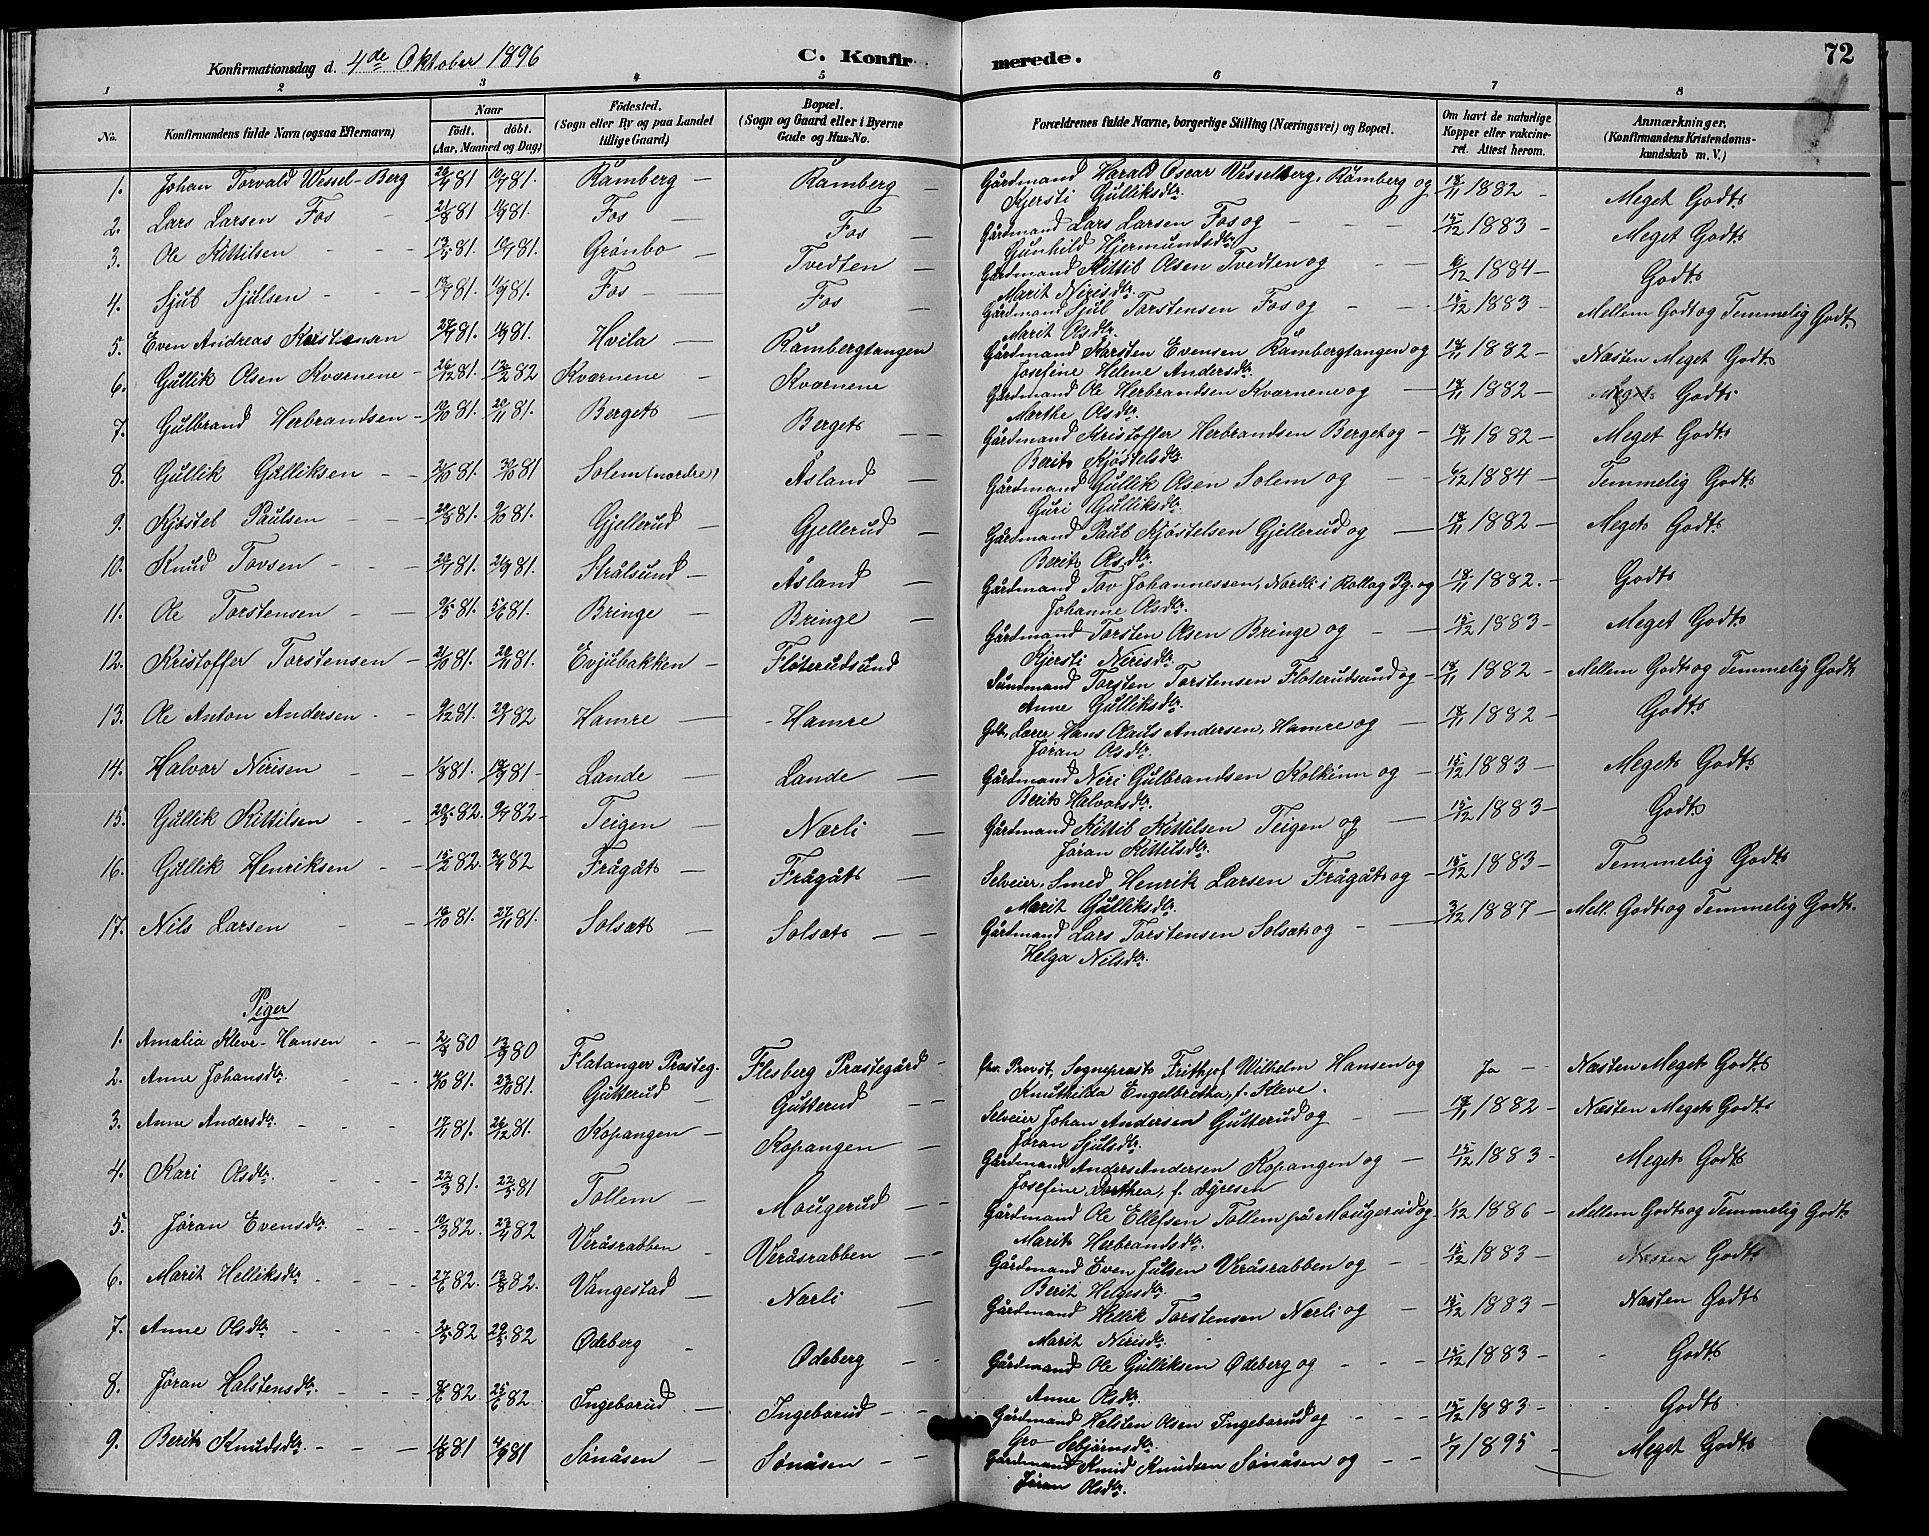 Konfirmationsdag d. 4de Oktober 1896 C. Konfirmerede. 72
1 2 3 4 5 6 7 8
No. Konfirmandens fulde Navn (ogsaa Efternavn) Naar født. døbt. (Aar, Maaned og Dag) Fødested. (Sogn eller By og paa Landet tillige Gaard) Bopæl. (Sogn og Gaard eller i Byerne Gade og Hus-No. Forældrenes fulde Navne, borgerlige Stilling (Næringsvei) og Bopæl. Om havt de naturlige Kopper eller vakcineret. Attest herom. Anmærkninger. (Konfirmandens Kristendomskundskab m. V.)
1. Johan Torvald Wessel-Berg 20/4 81 10/7 81. Råmberg Råmberg Gårdmand Harald Oscar Wesselberg, Råmberg og Kjersti Gulliksdtr. 18/11 1882 Meget Godt
2. Lars Larsen Fos 21/8 81 11/9 81. Fos Fos Gårdmand Lars Larsen Fos og Gunhild Hjermundsdtr. 15/12 1883 Meget Godt
3. Ole Kittilsen 13/5 81. 10/7 81. Grønbo Tvedten Gårdmand Kittil Olsen Tvedten og Marit Nirisdtr. 6/12 1884 Godt
4. Sjul Sjulsen 19/7 81. 11/9 81. Fos Fos Gårdmand Sjul Torstensen Fos og Marit Olsdtr. 15/12 1883 Mellem Godt og Temmelig Godt
5. Even Andreas Karstensen 27/7 81. 11/9 81. Hvila Råmbergtangen Gårdmand Karsten Evensen Råmbergtangen og Josefine Helene Andersdtr. 18/11 1882 Næsten Meget Godt
6. Gullik Olsen Kværnene 26/12 81. 12/2 82 Kværnene Kværnene Gårdmand Ole Herbrandsen Kværnene og Marthe Olsdtr. 18/11 1882 Meget Godt
7. Gulbrand Herbrandsen 19/10 81. 20/11 81. Berget Berget Gårdmand Kristoffer Herbrandsen Berget og Berit Kjøstelsdtr. 18/11 1882 Meget Godt
8. Gullik Gulliksen 2/10 81. 30/10 81 Solem (nordre) Åsland Gårdmand Gullik Olsen Solem og Guri Gulliksdtr. 6/12 1884 Temmelig Godt
9. Kjøstel Paulsen 28/8 81. 9/10 81. Gjellerud Gjellerud Gårdmand Paul Kjøstelsen Gjellerud og Berit Olsdtr. 18/11 1882 Meget Godt
10. Knud Tovsen 28/7 81. 21/9 81. Strålsund Åsland Gårdmand Tov Johannessen, Nordli i Rollag Pg. og Johanne Olsdtr. 18/11 1882. Godt
11. Ole Torstensen 9/5 81. 5/6 81. Bringe Bringe Gårdmand Torsten Olsen Bringe og Kjersti Nerisdtr. 15/12 1883 Meget Godt
12. Kristoffer Torstensen 21/10 81. 20/11 81. Evjubakken Floterudsund Sundmand Torsten Torstensen Floterudsund og Anne Gulliksdtr. 18/11 1882 Mellem Godt og Temmelig Godt
13. Ole Anton Andersen 9/12 81. 29/1 82 Hamre Hamre Lærer Hans Olaus Andersen, Hamre og Jøran Olsdtr. 18/11 1882 Godt
14. Halvor Nirisen 1/8 81. 18/9 81 Lande Lande Gårdmand Neri Gulbrandsen Kolkinn og Berit Halvorsdtr. 15/12 1883 Meget Godt
15. Gullik Kittilsen 20/5 82. 9/7 82 Teigen Nærli Gårdmand Kittil Kittilsen Teigen og Jøran Kittilsdtr. 15/12 1883 Godt
16. Gullik Henriksen 15/2 82. 2/4 82 Frågåt Frågåt Selveier, Smed Henrik Larsen Frågåt og Marit Gulliksdtr. 15/12 1883 Temmelig Godt
17. Nils Larsen 18/10 81. 27/11 81. Solsæt Solsæt Gårdmand Lars Torstensen Solsæt og Helga Nilsdtr. 3/12 1887 Mell. Godt og Temmelig Godt.
Piger
1. Amalia Kleve-Hansen 2/8 80 12/9 80 Flatanger Præsteg. Flesberg Præstegård Provst, Sogneprest Frithjof Wilhelm Hansen og Knuthilda Engelbretha, f. Kleve. Ja Næsten Meget Godt
2. Anne Johansdtr. 4/10 81. 23/10 81. Gutterud Gutterud Selveier Johan Andersen Gutterud og Jøran Sjulsdtr. 18/11 1882 Næsten Meget Godt
3. Anne Andersdtr. 17/11 81. 26/12 81. Kopangen Kopangen Gårdmand Anders Andersen Kopangen og Josefine Dorthea, f. Dyresen 15/12 1883 Meget Godt
4. Kari Olsdtr. 22/3 81. 22/5 81 Tollem Mougerud Gårdmand Ole Ellefsen Tollem på Mougerud og Marit Herbrandsdtr. 1/12 1886 Mellem Godt og Temmelig Godt
5. Jøran Evensdtr. 19/3 82. 23/4 82 Veråsrabben Veråsrabben Gårdmand Even Julsen Veråsrabben og Berit Helgesdtr. 15/12 1883 Næsten Godt
6. Marit Helliksdtr. 27/6 82. 13/8 82. Vangestad Nærli Gårdmand Hellik Torstensen Nærli og Marit Nirisdtr. 15/12 1883 Næsten Godt
7. Anne Olsdtr. 2/5 82 29/5 82 Ødeberg Ødeberg Gårdmand Ole Gulliksen Ødeberg og Anne Olsdtr. 15/12 1883 Godt
8. Jøran Halstensdtr. 8/6 82 25/6 82 Ingeborud Ingeborud Gårdmand Halsten Olsen Ingeborud og Gro Sebjørnsdtr. 15/12 1883 Godt
9. Berit Knudsdtr. 11/8 81 4/9 81 Sønåsen Sønåsen Gårdmand Knud Knudsen Sønåsen og Jøran Olsdtr. 1/7 1895 Meget Godt